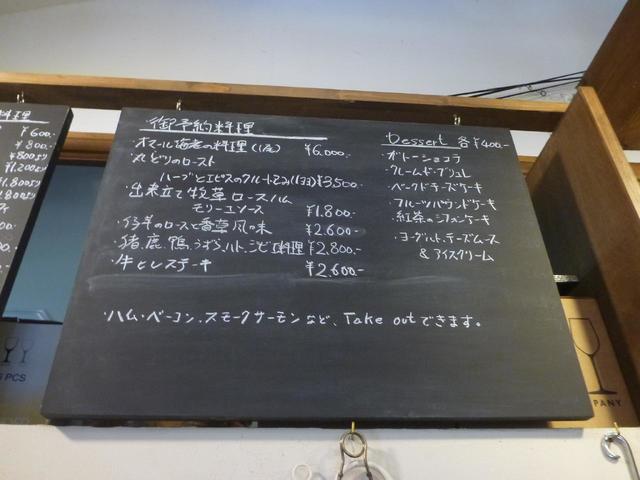 料理
¥600.-
¥800.-
¥800より
¥1,200より
1,800より
1,800より
御予約料理
・オマール海老の料理(1尾) ¥6,000.-
・丸どりのロースト
ハーブとエピスのクルート
¥3,500
・出来立て牧草ロースハム
モリーユソース ¥1,800.-
・仔羊のロースと香草風味 ¥2,600.-
・猪、鹿、鴨、うずら、ハト、ジビエ料理 ¥2,800.-
・牛ヒレステーキ ¥2,600-
・ハム・ベーコン、スモークサーモンなど、Take outできます。
Dessert 各¥400.-
・ガトーショコラ
・クレームド・ブリュレ
・ベークドチーズケーキ
・フルーツパウンドケーキ
・紅茶のシフォンケーキ
・ヨーグルト、チーズムース
&アイスクリーム
PCS
PANY